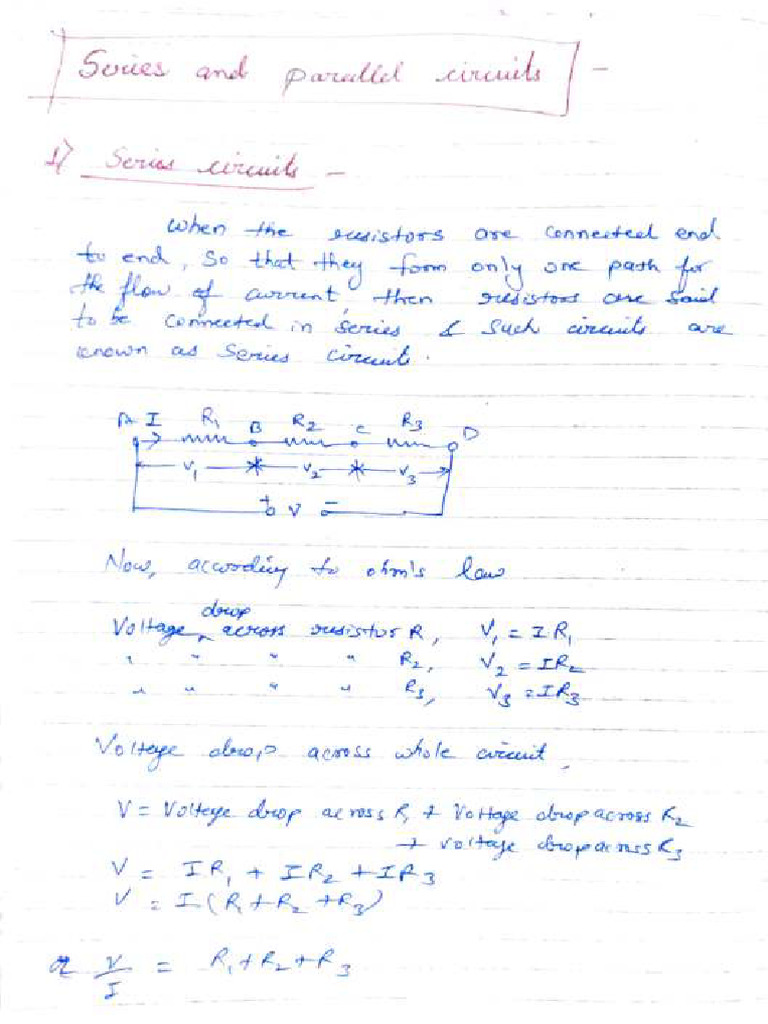 Series and parallel circuits -
1) Series circuits -
when the resistors are connected end
to end, so that they form only one path for
the flow of current, then resistors are said
to be connected in series & such circuits are
known as series circuits.
A I R1 B R2 C R3 D
V1 V2 V3
+ V -
Now, according to ohm's law
Voltage drop across resistor R1, V1 = IR1
" " " " R2, V2 = IR2
" " " " R3, V3 = IR3
Voltage drop across whole circuit,
V = Voltage drop across R1 + Voltage drop across R2
+ voltage drop across R3
V = IR1 + IR2 + IR3
V = I(R1+R2+R3)
or V/I = R1+R2+R3